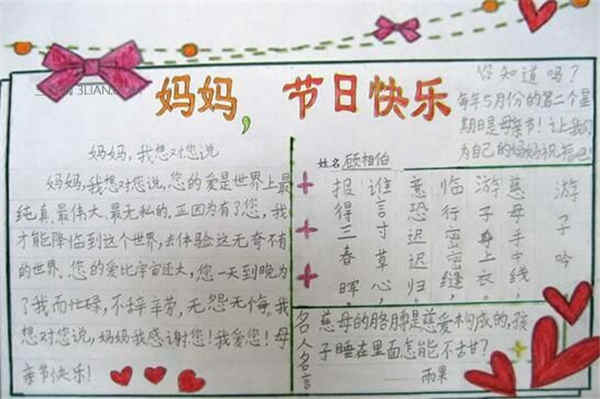 妈妈，节日快乐
你知道吗？
每年5月份的第二个星
期日是母亲节！让我们
为自己的妈妈祝福吧！
妈妈，我想对您说
妈妈，我想对您说，您的爱是世界上最
纯真、最伟大、最无私的，正因为有了您，我
才能降临到这个世界，去体验这无奇不有
的世界。您的爱比宇宙还大，您一天到晚为
了我而忙碌，不辞辛劳，无怨无悔，我
想对您说，妈妈我感谢您！我爱您！母
亲节快乐！
姓名 顾相伯
游子吟
慈母手中线，
游子身上衣。
临行密密缝，
意恐迟迟归。
谁言寸草心，
报得三春晖。
名人名言
慈母的胳膊是慈爱构成的，孩
子睡在里面怎能不甜？
——雨果